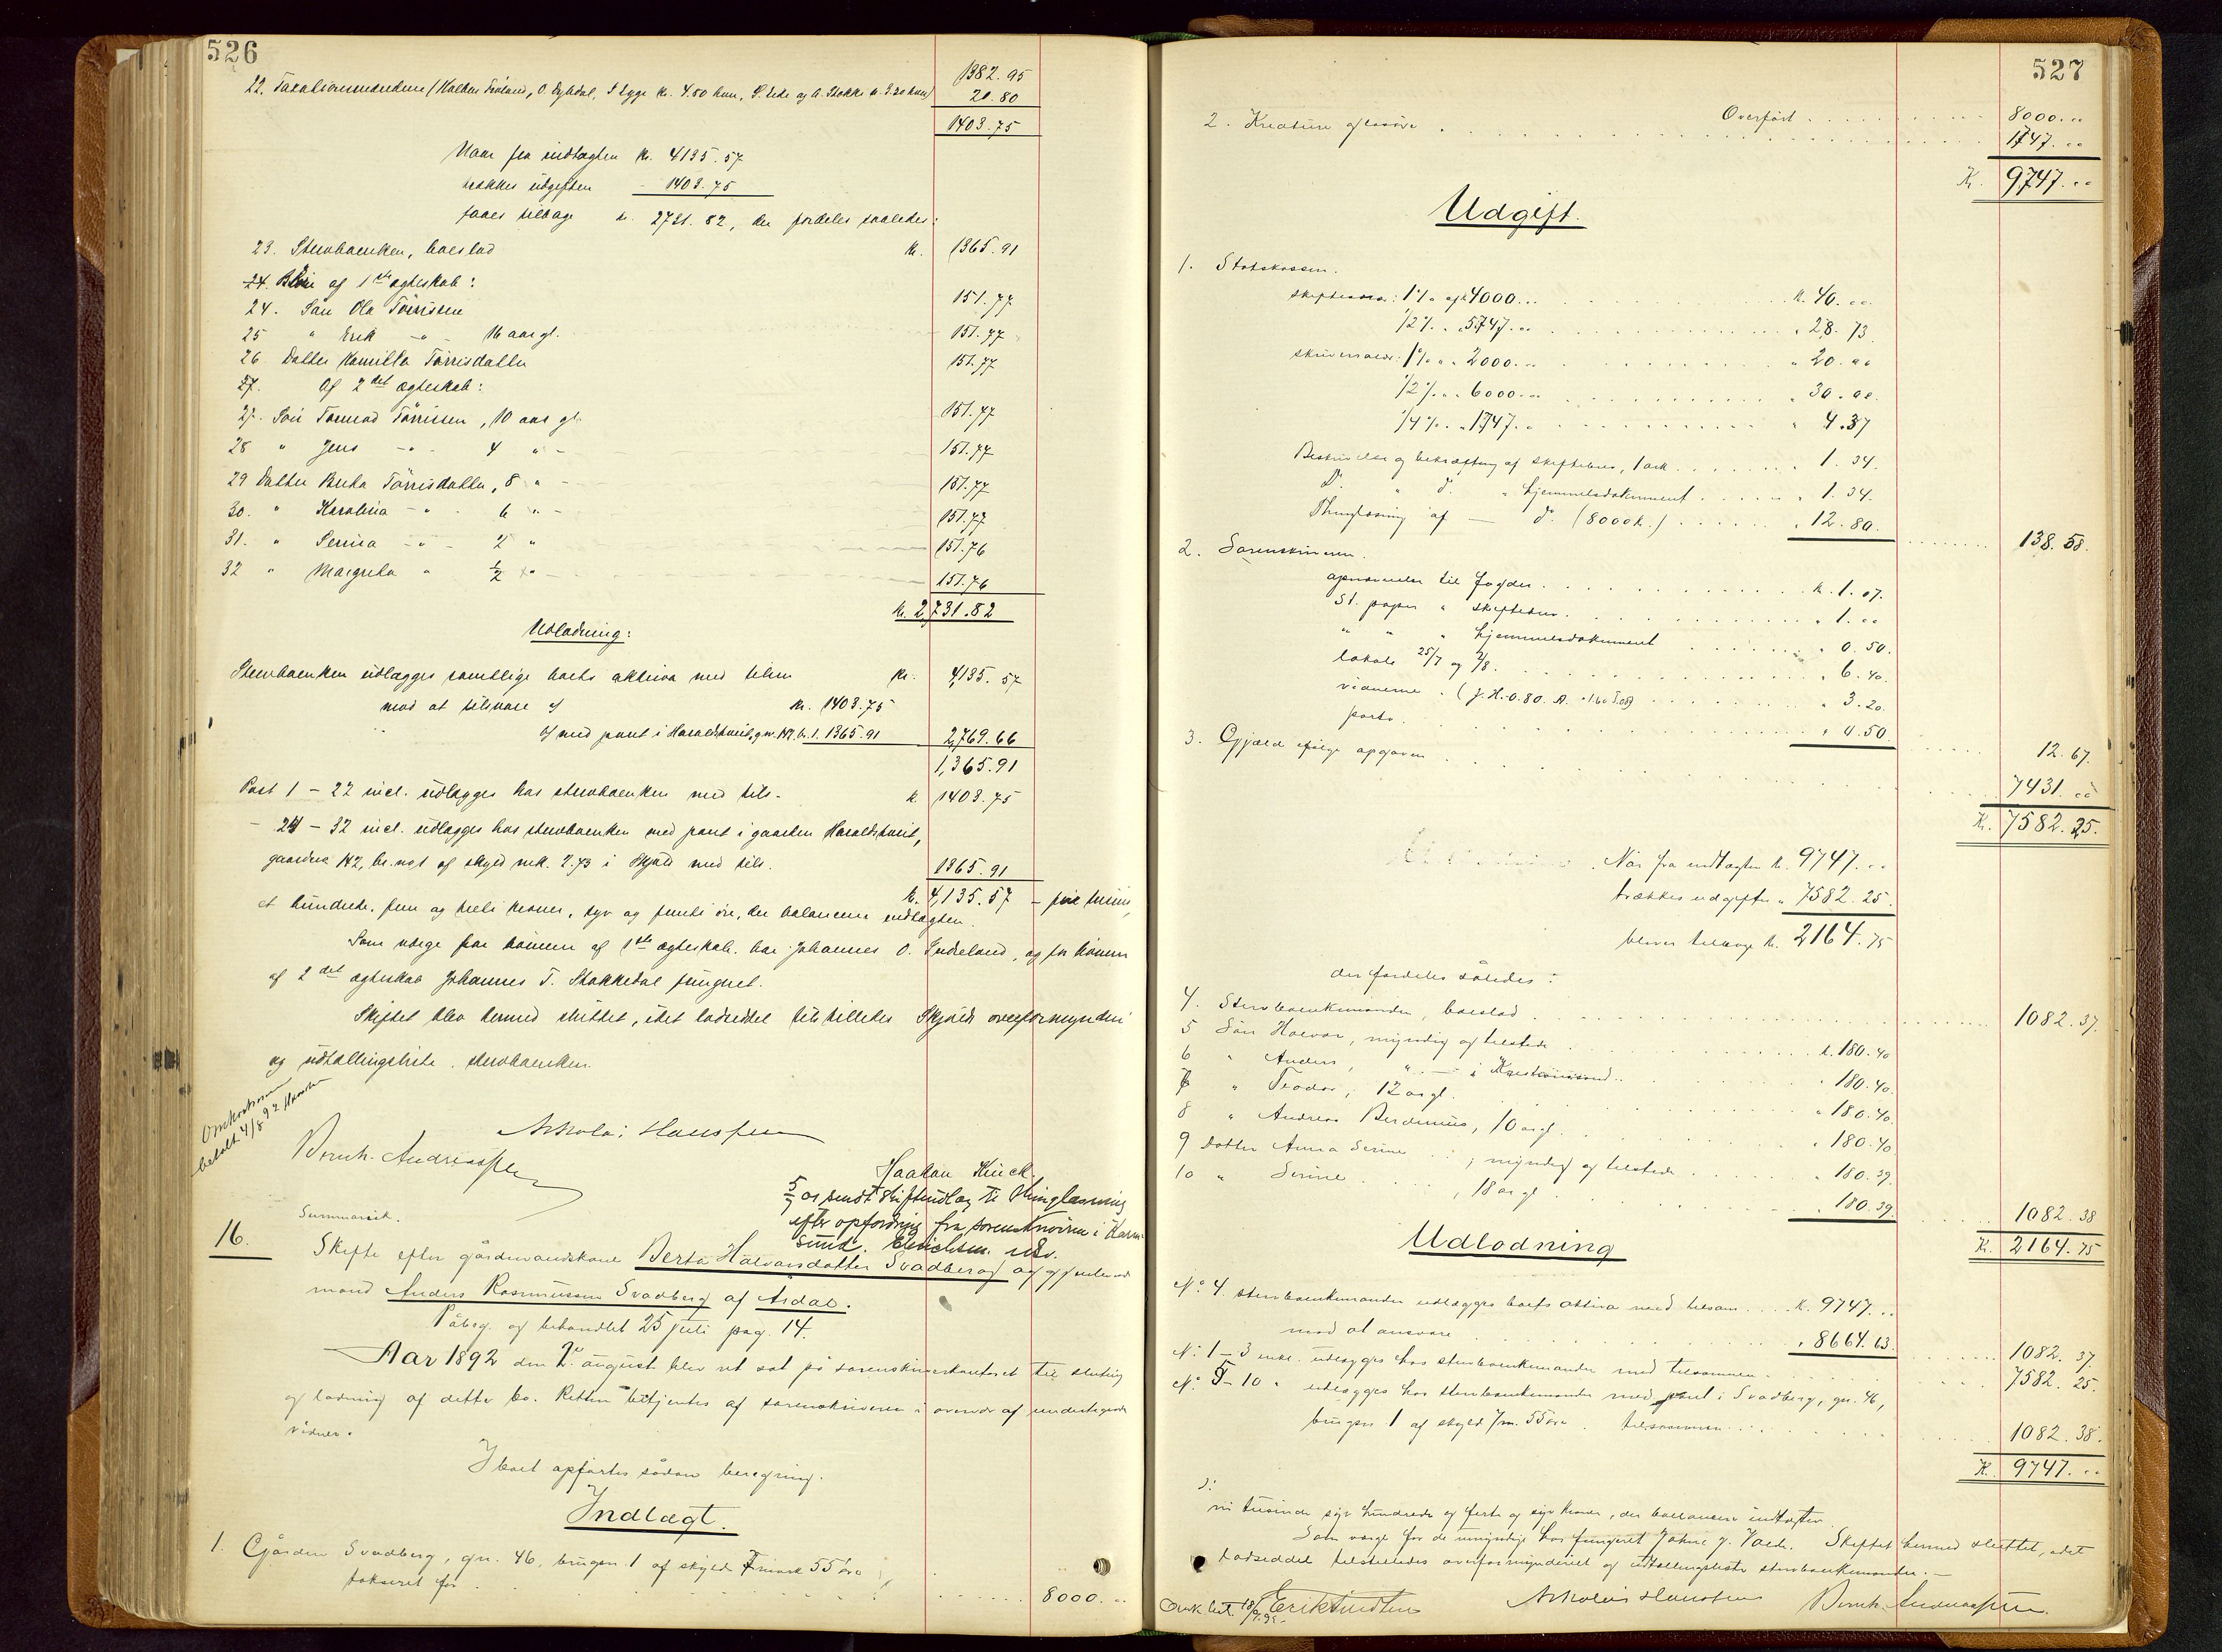 526
1382.95
22. Taxationsmændene (Halvar Frøland, O. Dybdal, kr. 4.80 hver, S. og A. Stokke kr. 3.20 hver) 20.80
1403.75
Naar fra indtægten kr. 4135.57
trækkes udgiften 1403.75
faaes tilbage kr. 2731.82, der fordeles saaledes:
23. Stervboenken, boeslod kr. 1365.91
24. Børn af 1ste ægteskab:
24. Søn Ola Tørrissen 151.77
25 " Erik - " - 16 aar gl. 151.77
26 Datter Kamilla Tørrisdatter 151.77
27. Af 2det ægteskab:
27. Søn Tormod Tørrissen, 10 aar gl. 151.77
28 " Jens - " - 4 " - 151.77
29 Datter Berta Tørrisdatter, 8 " - 151.77
30. " Karolina - " - 6 " - 151.77
31. " Serina - " - 2 " 151.76
32 " Margreta " ½ " - 151.76
kr. 2,731.82
Udlodning:
Stervboenken udlægges samtlige boets aktiva med tilsm kr. 4,135.57
mod at tilsvare kr. 1403.75
og med pant i Haraldstveit, g.nr. 142, b. 1. 1365.91 2,769.66
1,365.91
Post 1 - 22 incl. udlægges hos stervboenken med tils. k. 1403.75
- 24 - 32 incl. udlægges hos stervboenken med pant i gaarden Haraldstveit,
gaardnr 142, br. no 1 af skyld mk. 2.73 i Skjold med tils. 1365.91
kr. 4,135.57 - fire tusin,
et hundrede, fem og treti kroner, syv og femti øre, der balancerer indtægten.
Som værge for børnene af 1ste ægteskab har Johannes O. Indreland, og for børnene
af 2det ægteskab Johannes T. Stakkedal fungeret.
Skiftet blev hermed sluttet, idet lodseddel tilstilledes Skjolds overformynderi
og udtællingsliste stervboenken.
Omkostninger
betalt 4/8 92
Nikolai Hanssen
Bernh. Andreassen
Haakon Kinck.
5/9 95 sendt skifteudlæg til thinglæsning
efter opfordring fra sorenskriveren i Karm-
sund.
16. Summarisk.
Skifte efter gårdmandskone Berta Halvorsdatter Svadberg og gjenlevende
mand Anders Rasmussen Svadberg af Årdal.
Påbeg. og behandlet 25 juli pag. 14.
Aar 1892 den 2. august blev ret sat på sorenskriverkontoret til slutning
og lodning af dette bo. Retten betjentes af sorenskriveren i overvær af undertegnede
vidner.
I boet opførtes sådan beregning.
Indtægt.
1. Gården Svadberg, gnr. 46, brugsnr. 1 af skyld 7 mark 55 øre
takseret for 8000. ..
527
Overført 8000. ..
2. Kreature og løsøre 1747. ..
K. 9747. ..
Udgift.
1. Statskassen.
skifteafg.: 1 % af k 4000. .. k. 40. ..
1/2 % " 5747. .. " 28.73
skriversalær: 1 % " 2000. .. " 20. ..
1/2 % " 6000. .. " 30. ..
1/4 % " 1747. .. " 4.37
Beskrivelse og bekræftning af skiftebrev, 1 ark " 1.34.
D. " d. " hjemmelsdokument " 1.34.
Thinglæsning af — d. (8000 k.) " 12.80.
138.58.
2. Sorenskriveren.
 til fogden k. 1.07.
St. papir " skiftebrev " 1. ..
" " " hjemmelsdokument " 0.50.
lokale 25/7 og 2/8 " 6.40.
vidnerne " 3.20.
porto " 0.50.
12.67.
3. Gjæld ifølge opgaven 7431. ..
K. 7582.25.
Når fra indtægten k. 9747. ..
trækkes udgiften " 7582.25.
bliver tilovers k. 2164.75
der fordeles således:
4. Stervboenkemanden, boeslod 1082.37.
5 Søn Halvor, myndig og tilstede k. 180.40
6 " Anders, " — i Kristianssund " 180.40.
7 " Teodor, 12 år gl. " 180.40.
8 " Andreas Berdinius, 10 år gl. " 180.40
9 Datter Anna Serine, myndig og tilstede " 180.39.
10 " Serine, 18 år gl. " 180.39.
1082.38
K. 2164.75
Udlodning
No. 4. stervboenkemanden udlægges boets aktiva med tilsam k. 9747. ..
mod at ansvare " 8664.63. 1082.37.
No. 1 - 3 inkl. udlægges hos stervboenkemanden med tilsammen 7582.25.
No. 5 - 10 " udlægges hos stervboenkemanden med pant i Svadberg, gnr. 46,
brugsnr. 1 af skyld 7 m. 55 øre tilsammen 1082.38.
K. 9747. ..
ɔ:
ni tusinde syv hundrede og førti og syv kroner, der ballancerer indtægten.
Som værge for de umyndige har fungeret Skiftet hermed sluttet, idet
lodseddel tilstilledes overformynderiet og udtællingsliste stervboenkemanden. —
Omk. bet. 18/9.92 Erik Knudsen Nikolai Hanssen Bernh. Andreassen.